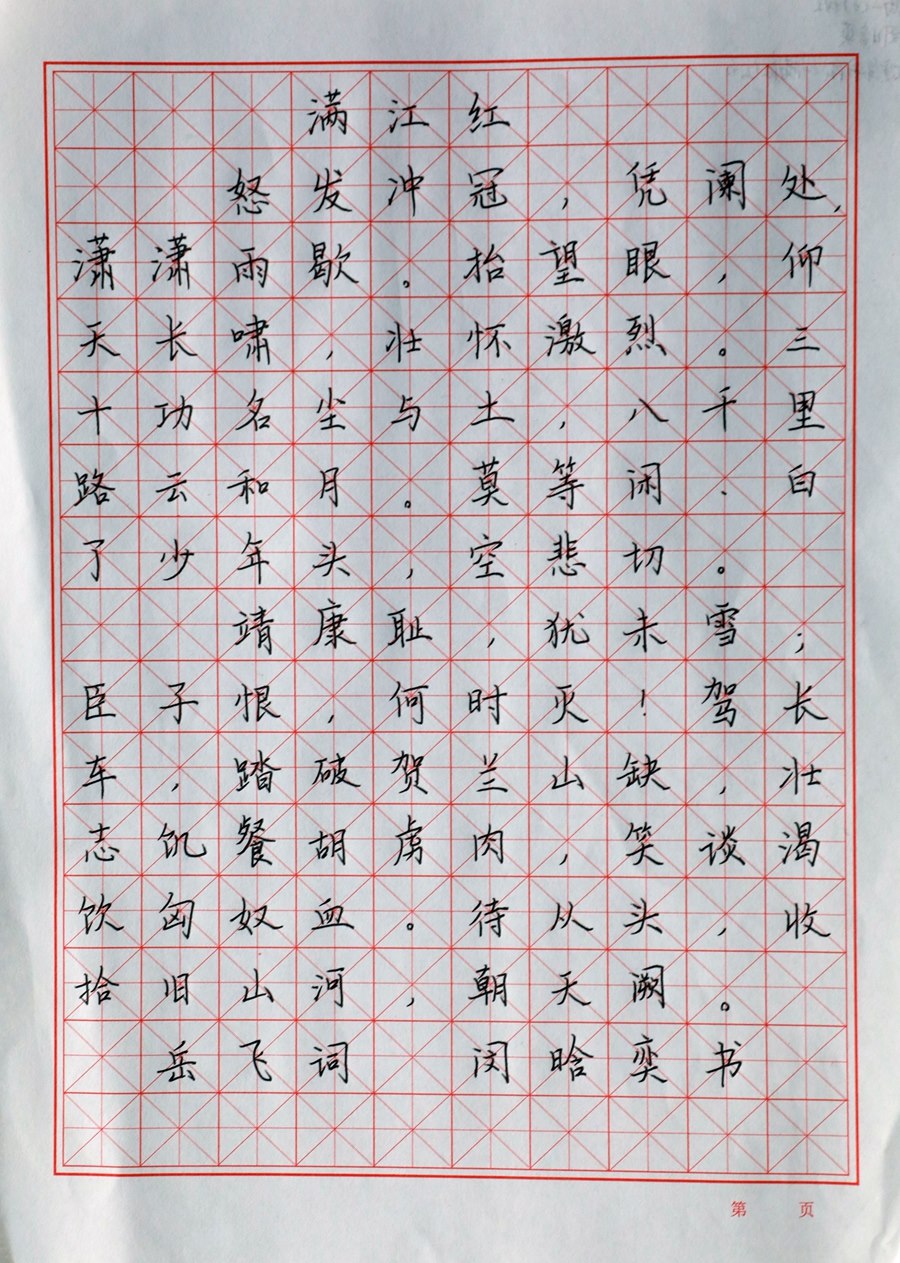 满江红
怒发冲冠，凭阑处，
潇潇雨歇。抬望眼，仰
天长啸，壮怀激烈。三
十功名尘与土，八千里
路云和月。莫等闲、白
了少年头，空悲切。
靖康耻，犹未雪；
臣子恨，何时灭！驾长
车，踏破贺兰山缺，壮
志饥餐胡虏肉，笑谈渴
饮匈奴血。待从头，收
拾旧山河，朝天阙。
岳飞词 闵晗奕书
第 页